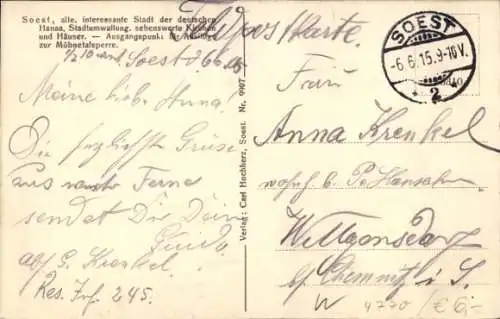 Soest, alte, interessante Stadt der deutschen
Hansa, Stadtumwallung, sehenswerte Kirchen
und Häuser. — Ausgangspunkt für Ausflüge
zur Möhnetalsperre.
Feldpostkarte.
SOEST
-6.6.15.9-10V.
* 2
Soest d 6.6.15
Meine lieb. Anna!
Die herzlichsten Grüße
aus Ferne
sendet Dir Dein
Guido
abs. G. Krenkel
Res. Inf. 245.
Verlag: Carl Hochherz, Soest. Nr. 9907
Frau
Anna Krenkel
wohnh. b.
Wittgensdorf
bei Chemnitz i. S.
W 4770 / € 6,-